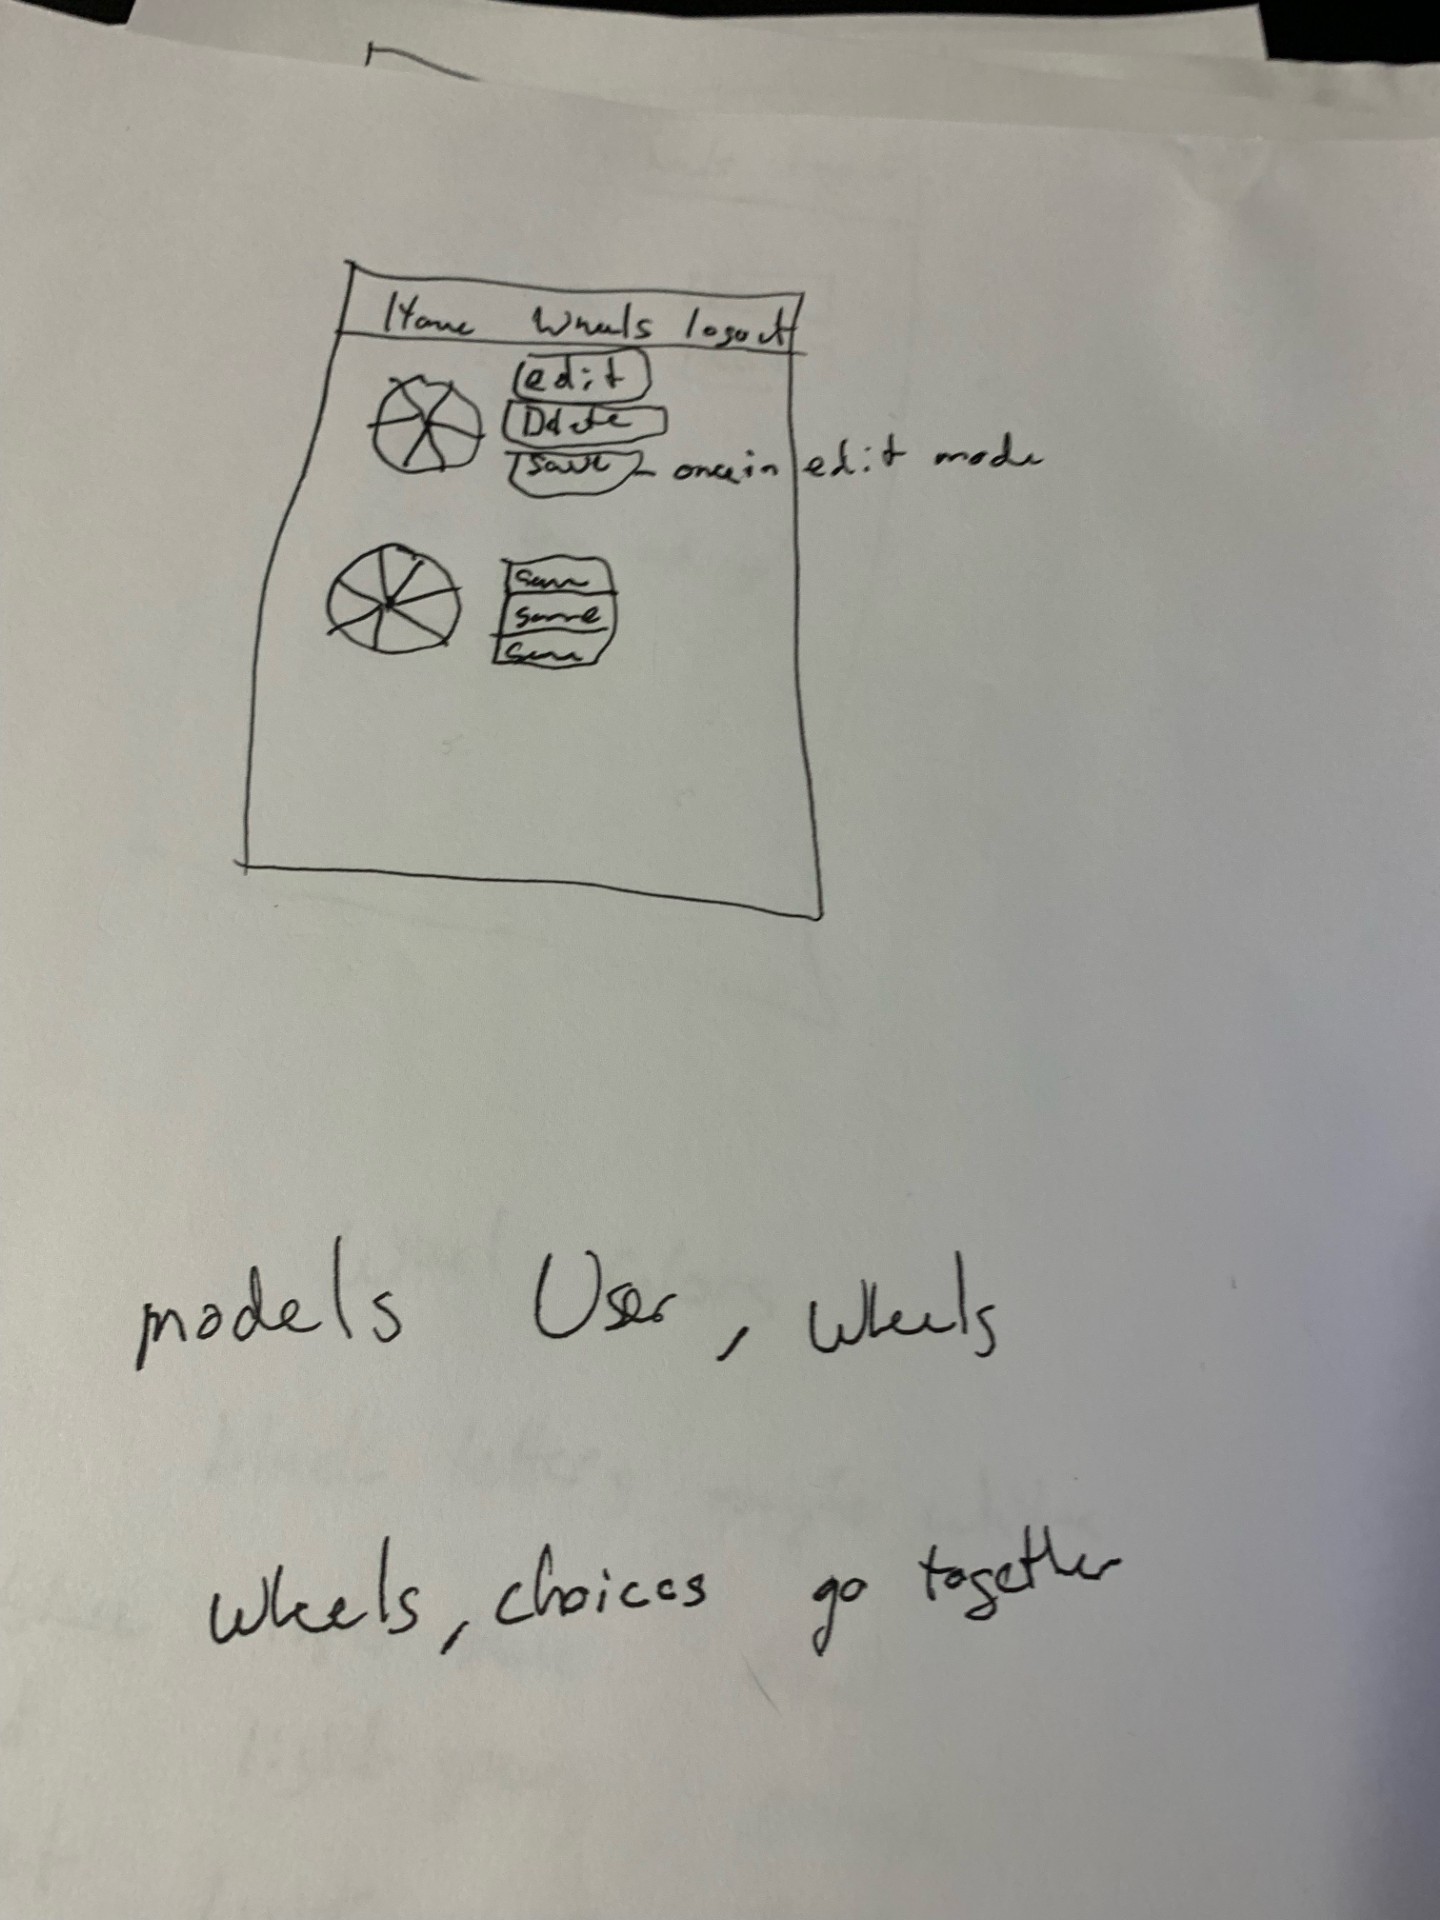 Home Wheels logout
edit
Delete
save - once in edit mode
same
same
same
models User, Wheels
wheels, choices go together